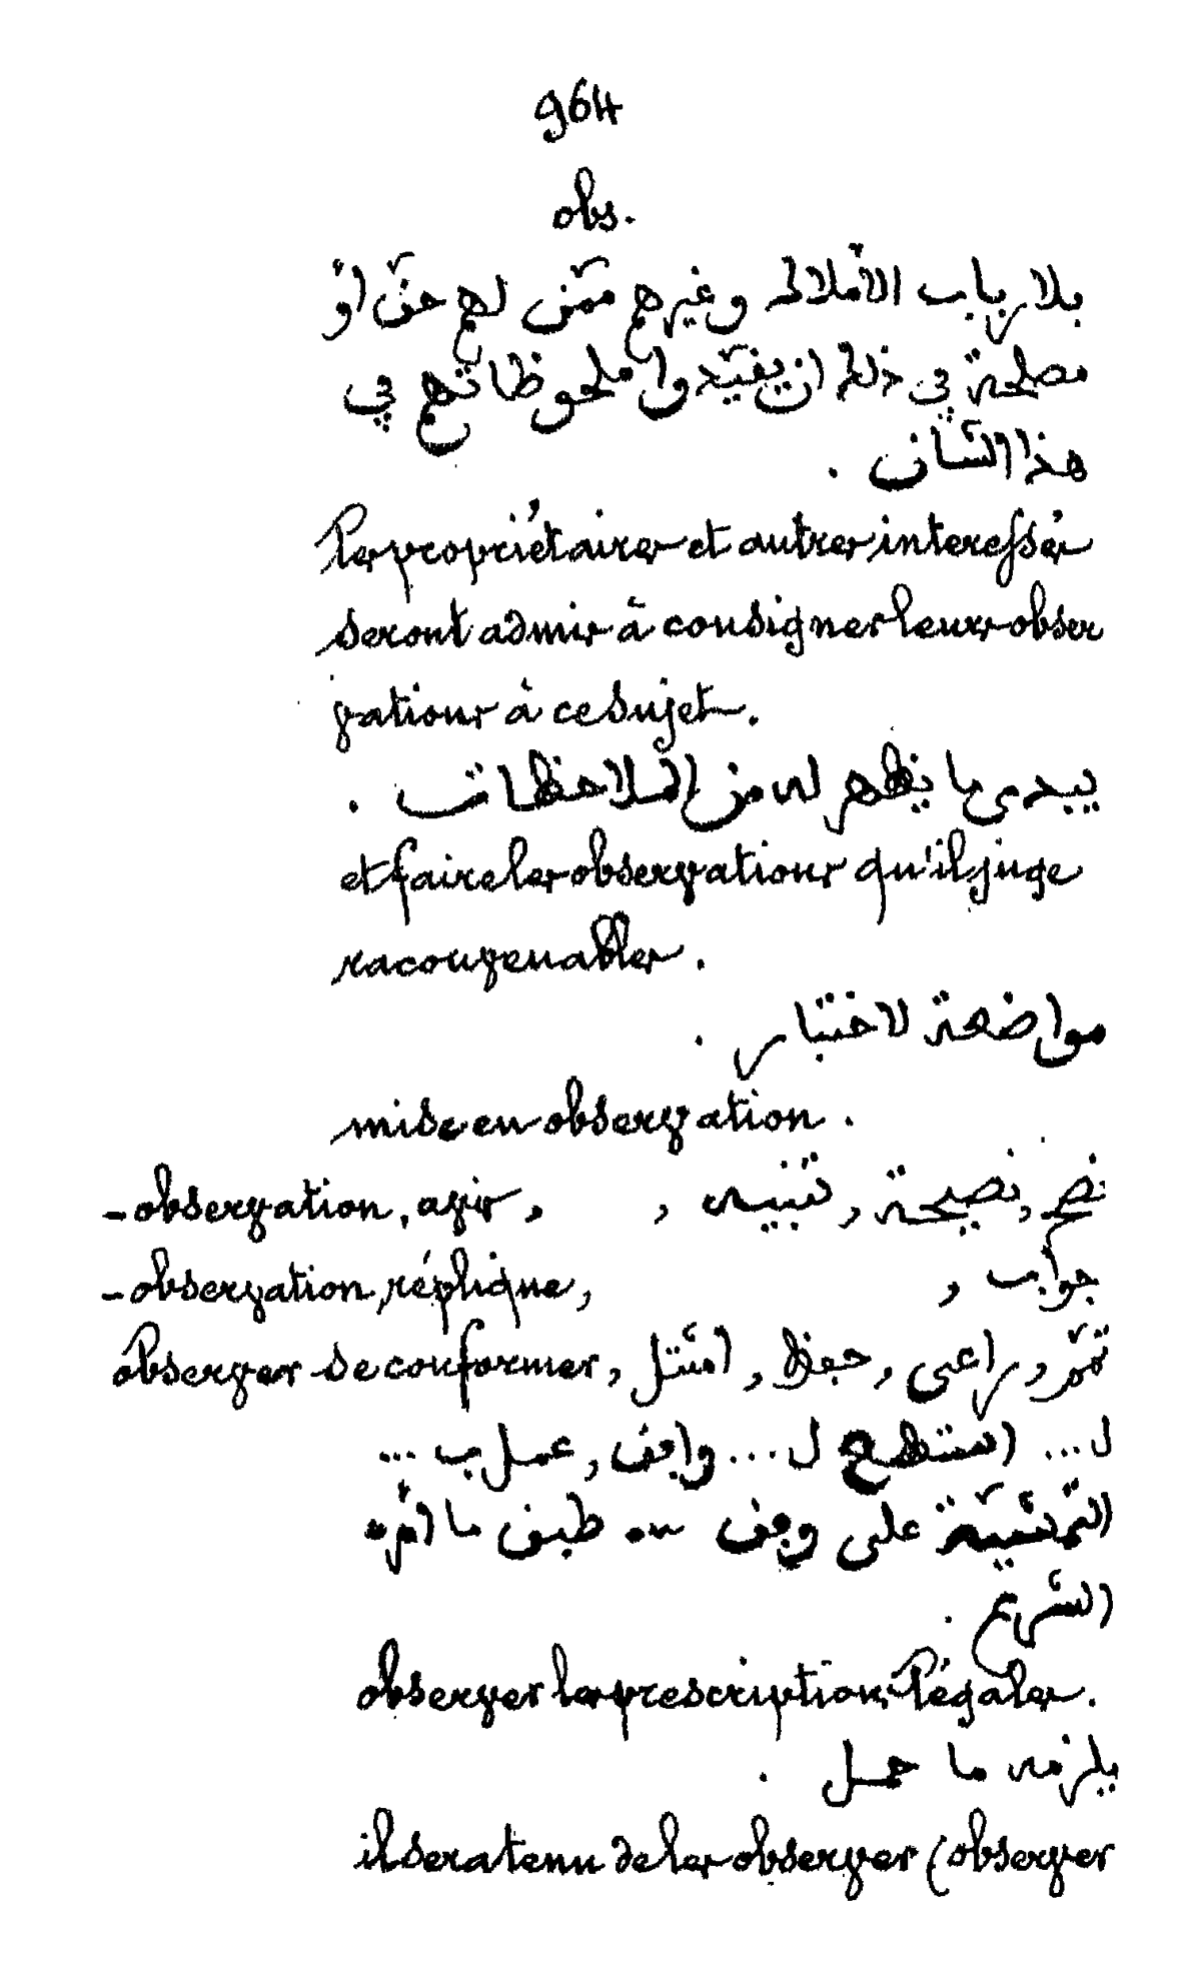 964
obs.
بلارباب الأملاك وغيرهم ممّن لهم حقّ أو
مصلحة في ذلك ان يقيّدوا ملحوظاتهم في
هذا الشّأن .
les propriétaires et autres interessés
seront admis à consigner leurs obser
vations à ce sujet.
يبدى ما يظهر له من الملاحظات .
et faire les observations qu'il juge
ra convenables.
مواضعة لاختبار .
mise en observation.
- observation, avis, نصح, نصيحة, تنبيه ,
- observation, réplique, جواب ,
observer se conformer, تمّم, راعى, حفظ, امتثل
ل ... استظهر ل ... وافق, عمل ب ...
التّمشّية على وفق ـــه طبق ما أمر به
الشّرع .
observer les prescriptions légales.
يلزمه ما حمل .
il sera tenu de les observer (observer